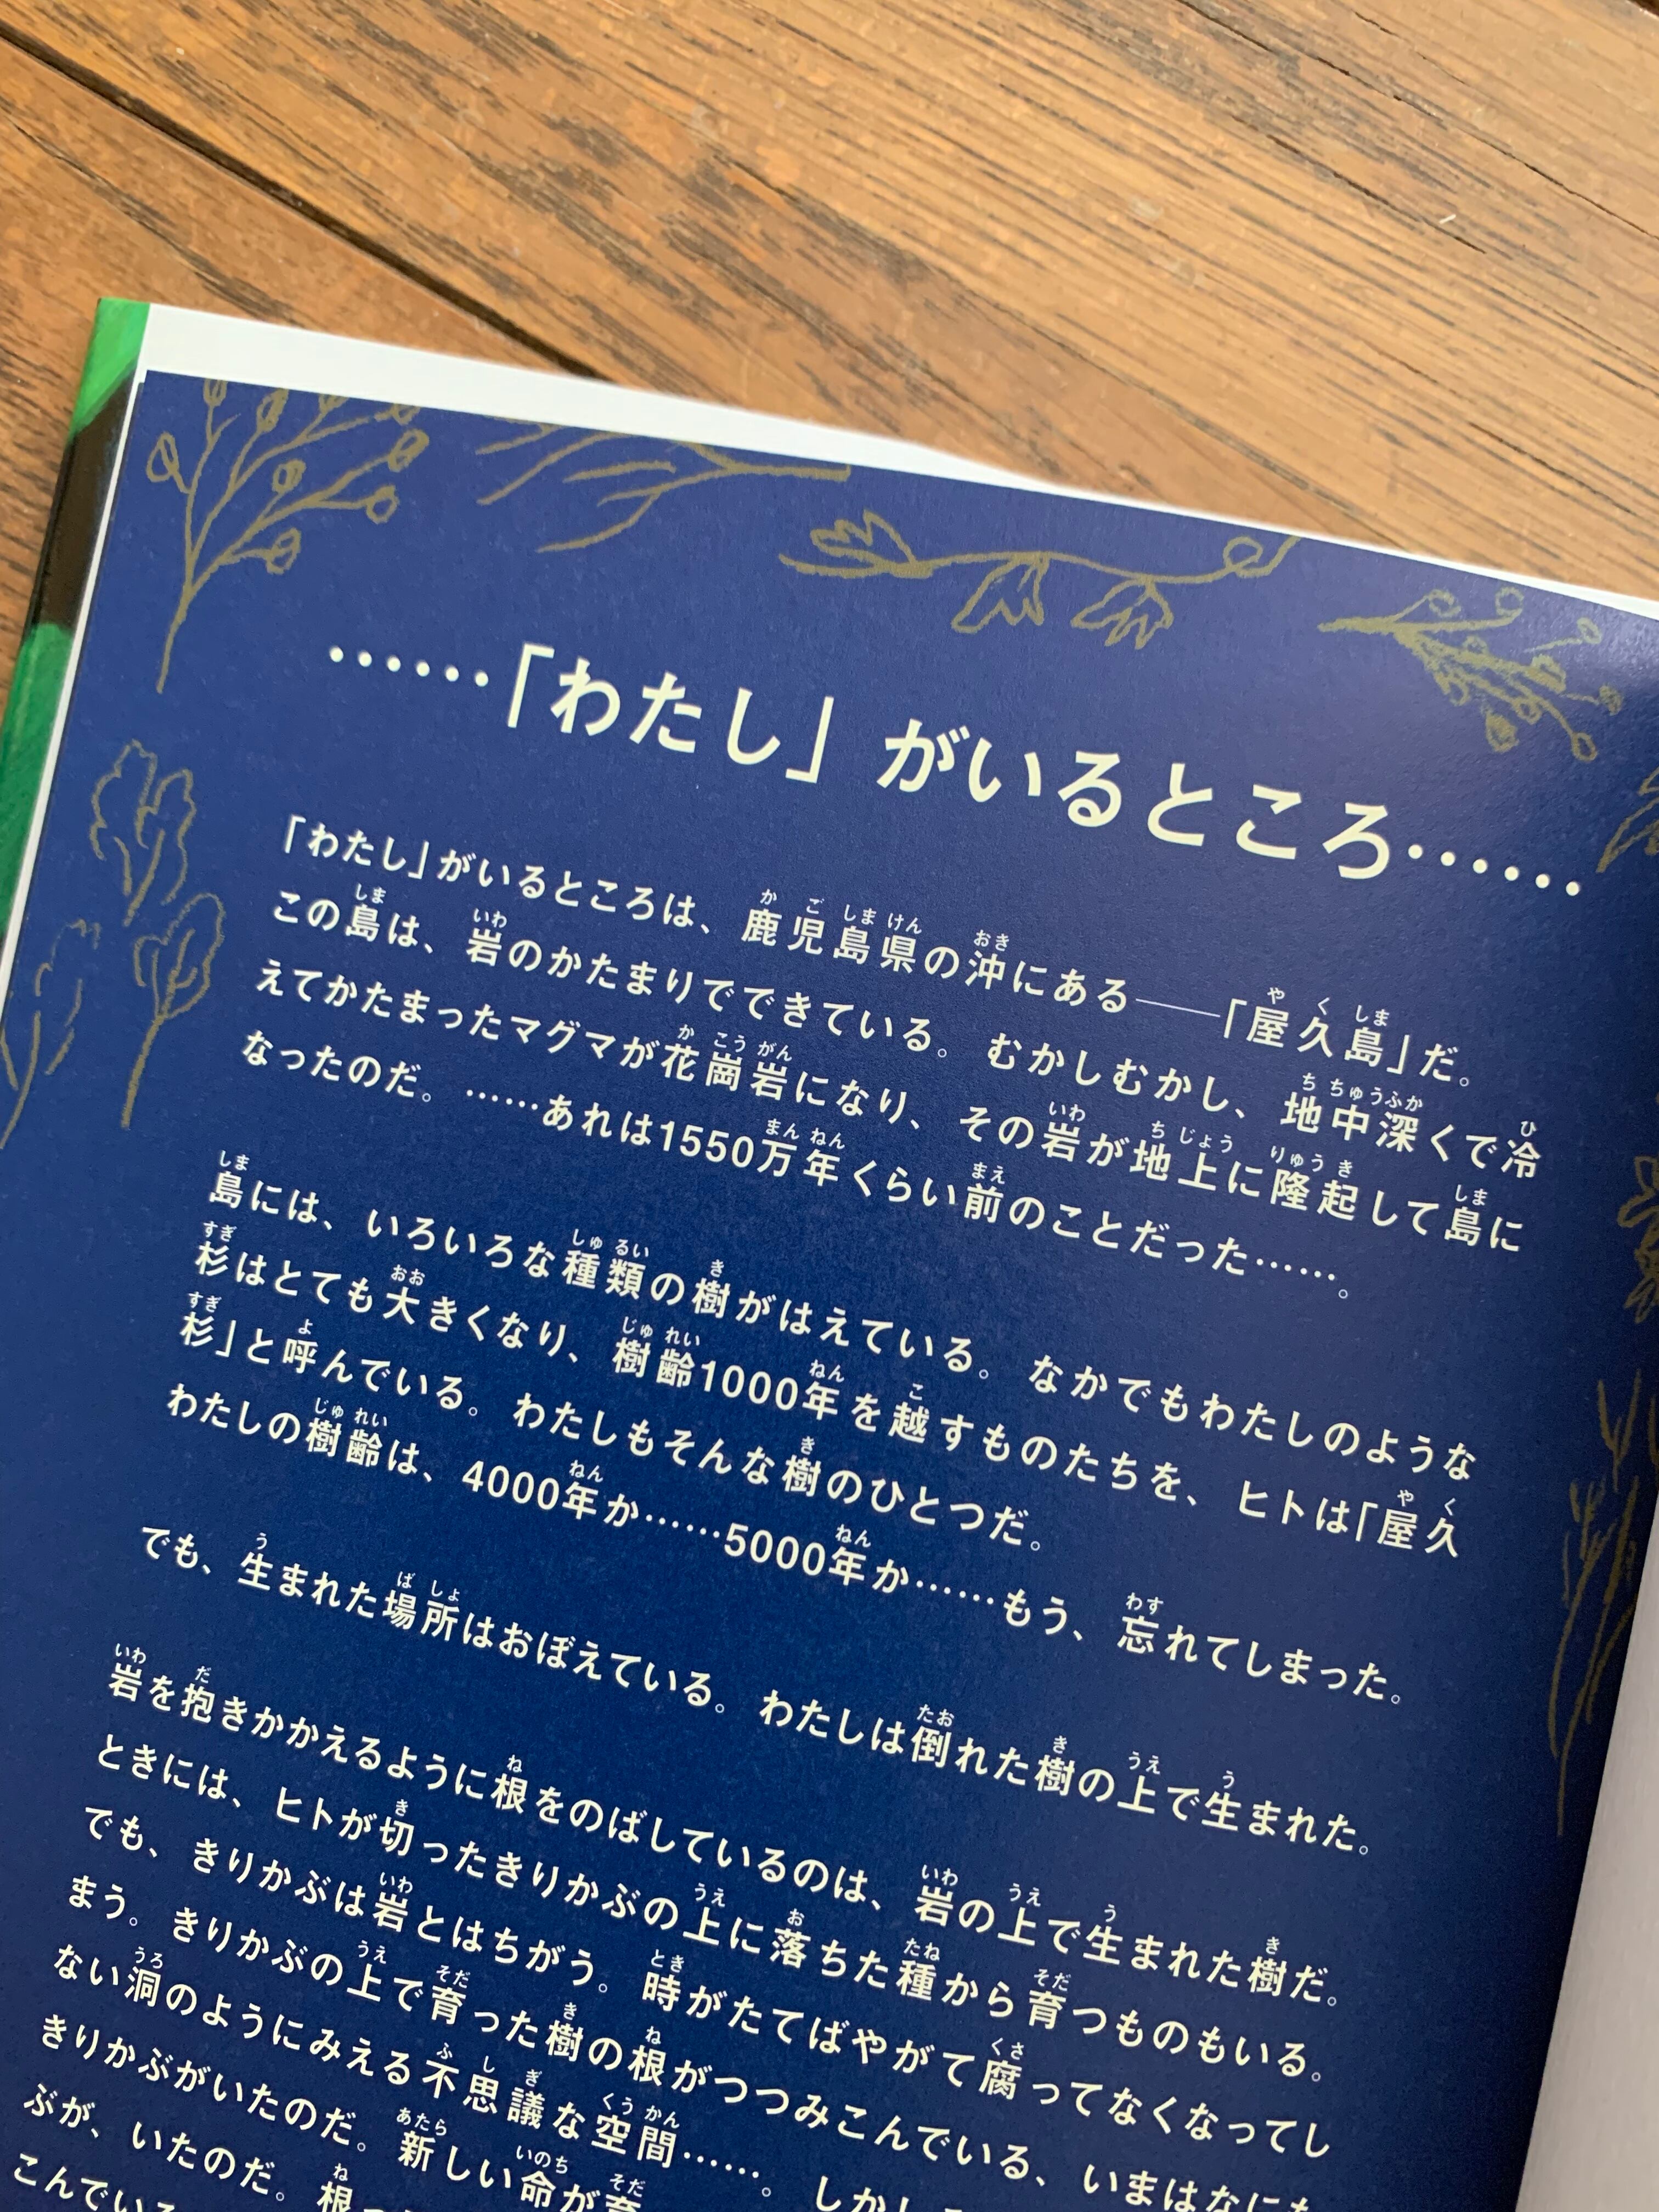 ……「わたし」がいるところ……
「わたし」がいるところは、鹿児島県の沖にある――「屋久島」だ。
この島は、岩のかたまりでできている。むかしむかし、地中深くで冷
えてかたまったマグマが花崗岩になり、その岩が地上に隆起して島に
なったのだ。……あれは1550万年くらい前のことだった……。
島には、いろいろな種類の樹がはえている。なかでもわたしのような
杉はとても大きくなり、樹齢1000年を越すものたちを、ヒトは「屋久
杉」と呼んでいる。わたしもそんな樹のひとつだ。
わたしの樹齢は、4000年か……5000年か……もう、忘れてしまった。
でも、生まれた場所はおぼえている。わたしは倒れた樹の上で生まれた。
岩を抱きかかえるように根をのばしているのは、岩の上で生まれた樹だ。
ときには、ヒトが切ったきりかぶの上に落ちた種から育つものもいる。
でも、きりかぶは岩とはちがう。時がたてばやがて腐ってなくなってし
まう。きりかぶの上で育った樹の根がつつみこんでいる、いまはなにも
ない洞のようにみえる不思議な空間……。しかし
きりかぶがいたのだ。新しい命が育
ぶが、いたのだ。根
こんでい